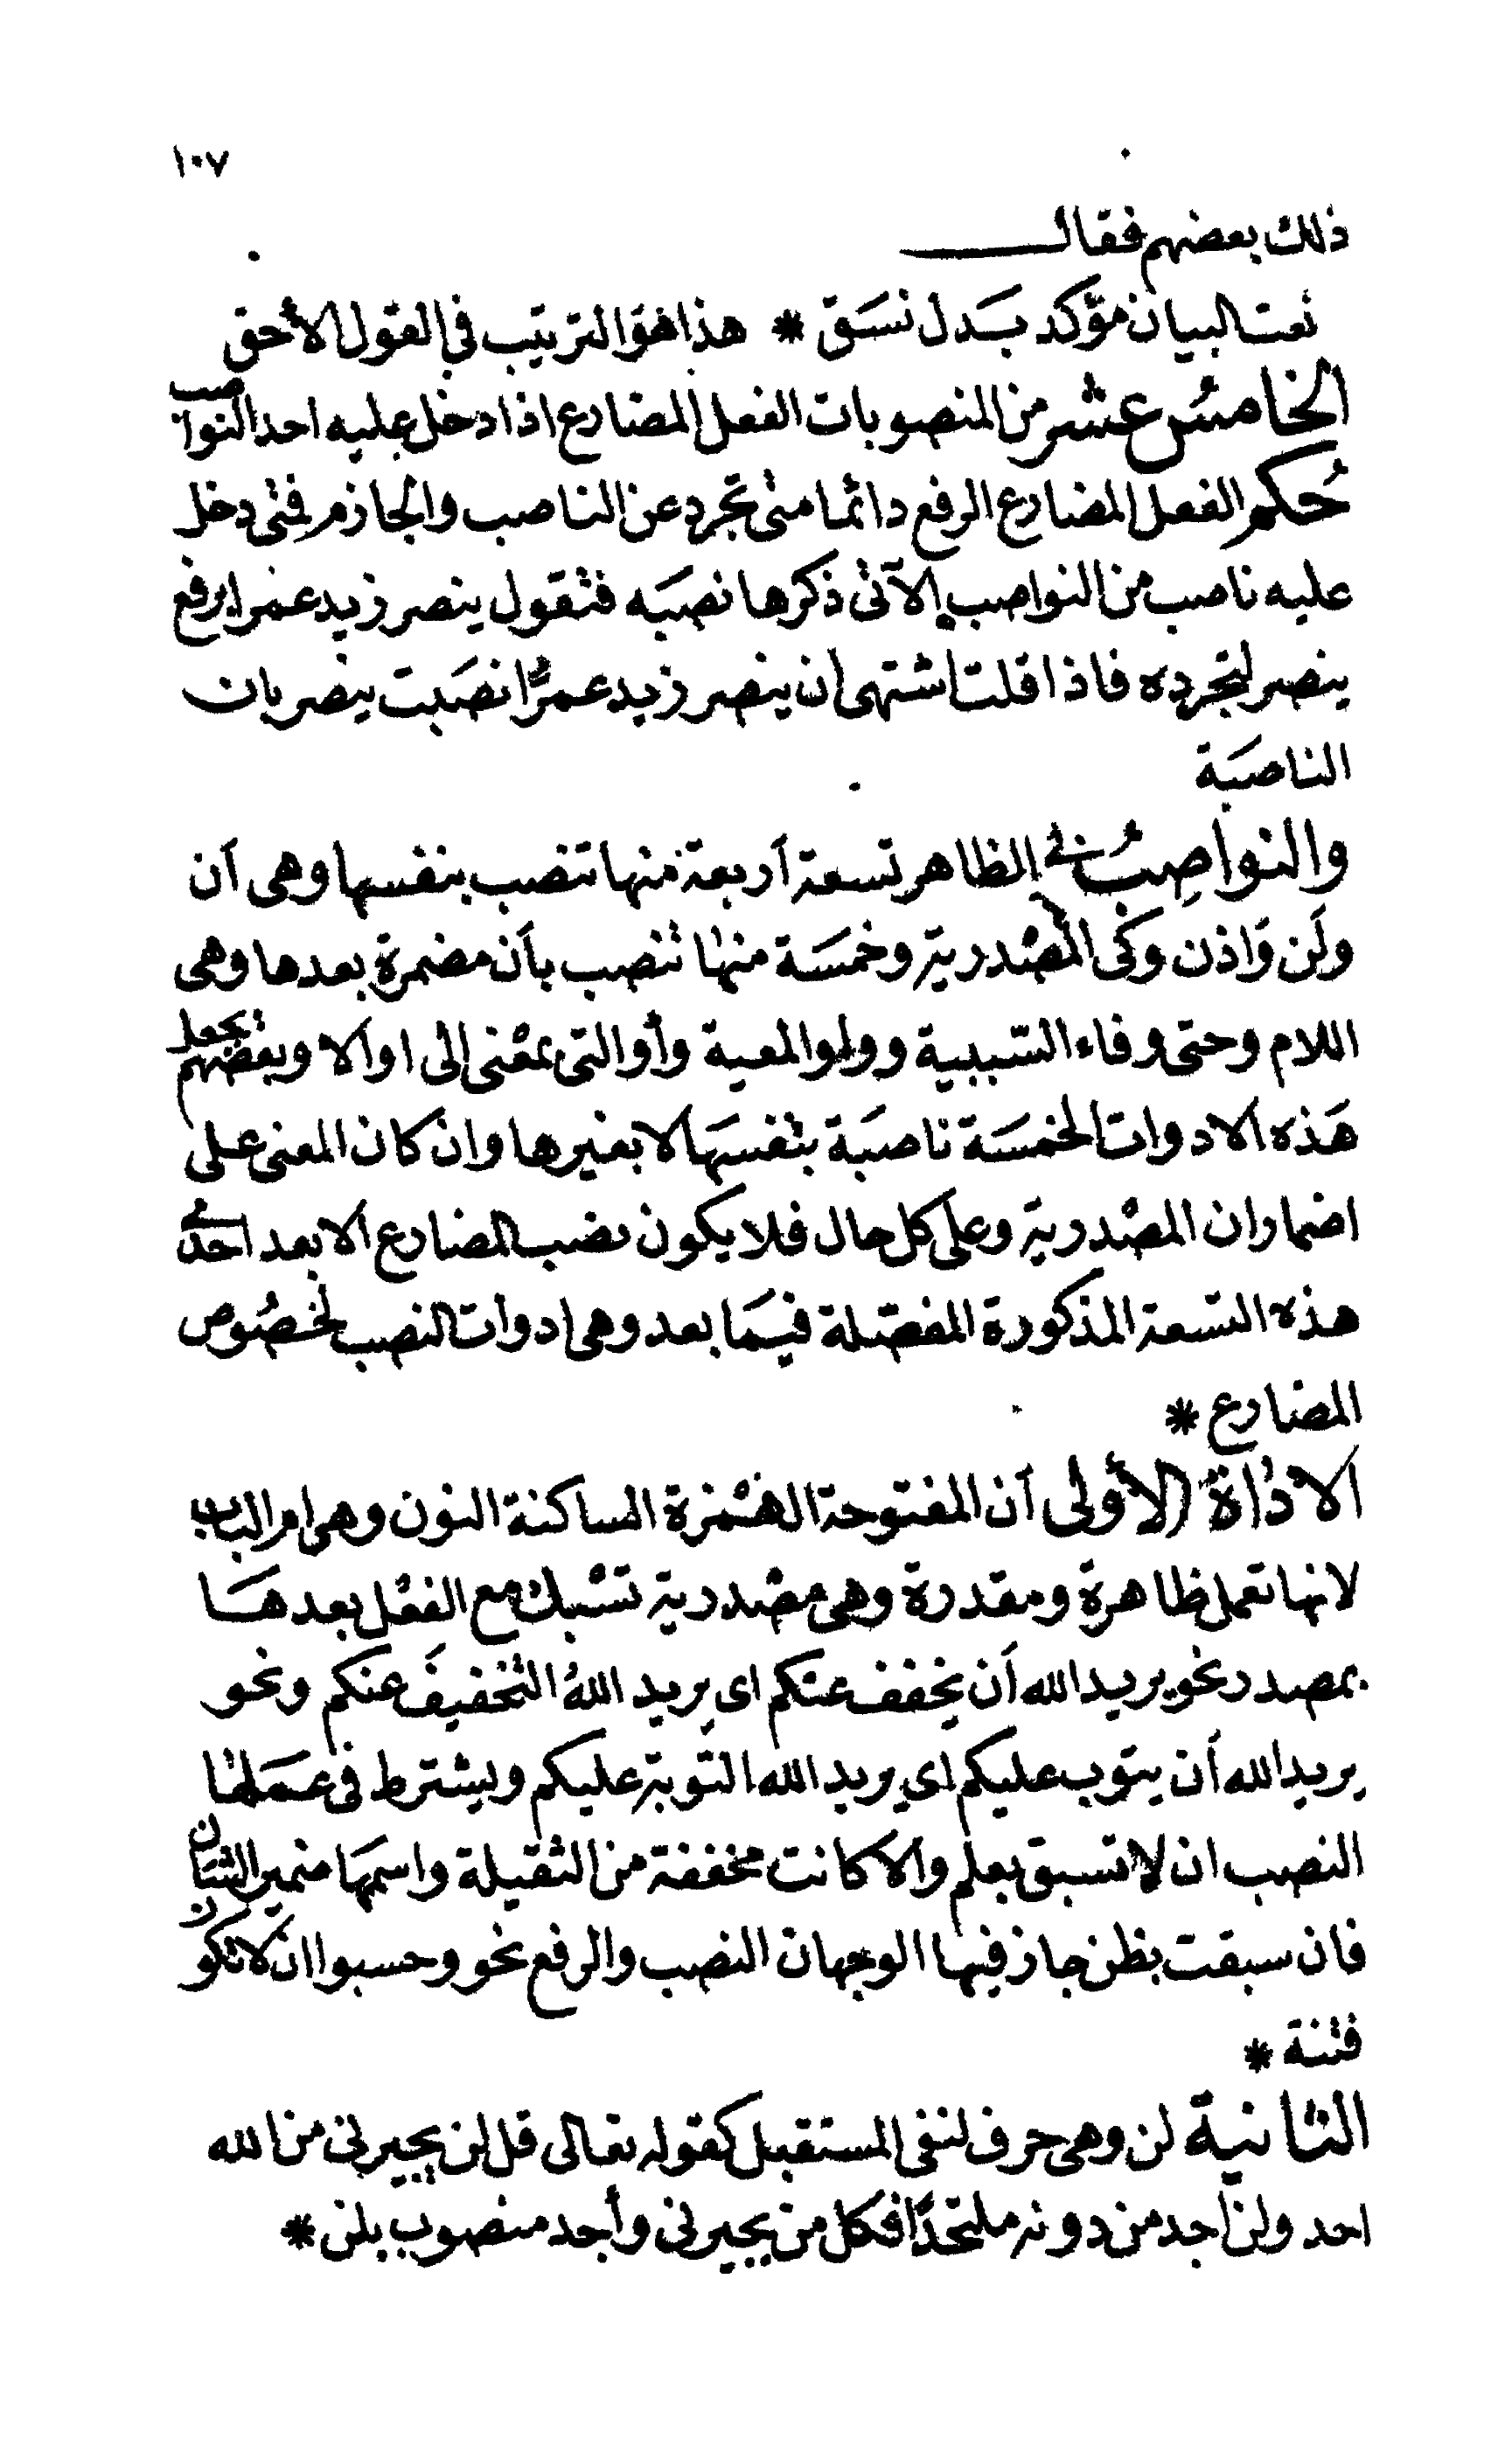 ١٠٧
ذلك بعضهم فقال
نعت البيان مؤكد بدل نسق * هذا هو الترتيب في القول الأحق
الخامس عشر من المنصوبات الفعل المضارع اذا دخل عليه احد النواصب
حُكم الفعل المضارع الرفع دائما متى تجرد عن الناصب والجازم فمتى دخل
عليه ناصب من النواصب الآتى ذكرها نصبَه فتقول ينصر زيد عمرا برفع
ينصر لتجرده فاذا قلت اشتهى ان ينصر زيد عمرًا نصَبت ينصر بان
الناصبَة
والنواصِبُ في الظاهر تسعة أربعة منها تنصب بنفسها وهى أن
ولَن وَاذن وكَى المصْدرية وخمسَة منها تنصب بأن مضمرة بعدها وهى
اللام وحتى وفاء السّببية وواو المعية وأو التى بمعْنى إلى او الا وبعضهم يجعل
هَذه الادوات الخمسَة ناصبَة بنفسَها لا بغيرها وان كان المعنى على
اضمار ان المصْدرية وعلى كل حال فلا يكون نصب المضارع الا بعد احدى
هذه التسعة المذكورة المفصّلة فيمَا بعد وهى ادوات النصب لخصُوص
المضارع *
الاداة الأولى أن المفتوحة الهمْزة الساكنة النون وهى ام الباب
لانها تعمل ظاهرة ومقدرة وهى مصْدرية تسْبك مع الفعْل بعدهَا
بمصدر نحو يريد الله أن يخفف عنكم اى يريد اللهُ التخفيفَ عنكم ونحو
يريد الله أن يتوب عليكم اى يريد الله التوبة عليكم ويشترط فى عمَلها
النصب ان لا تسبق بعلم والا كانت مخففة من الثقيلة واسمهَا ضمير الشان
فان سبقت بظن جاز فيها الوجهان النصب والرفع نحو وحسبوا ان لا تكون
فتنة *
الثانية لن وهى حرف لنفى المستقبل كقوله تعالى قل لن يجيرنى من الله
احد ولن اجد من دونه ملتحدًا فكل من يجيرنى وأجد منصوب بلن *